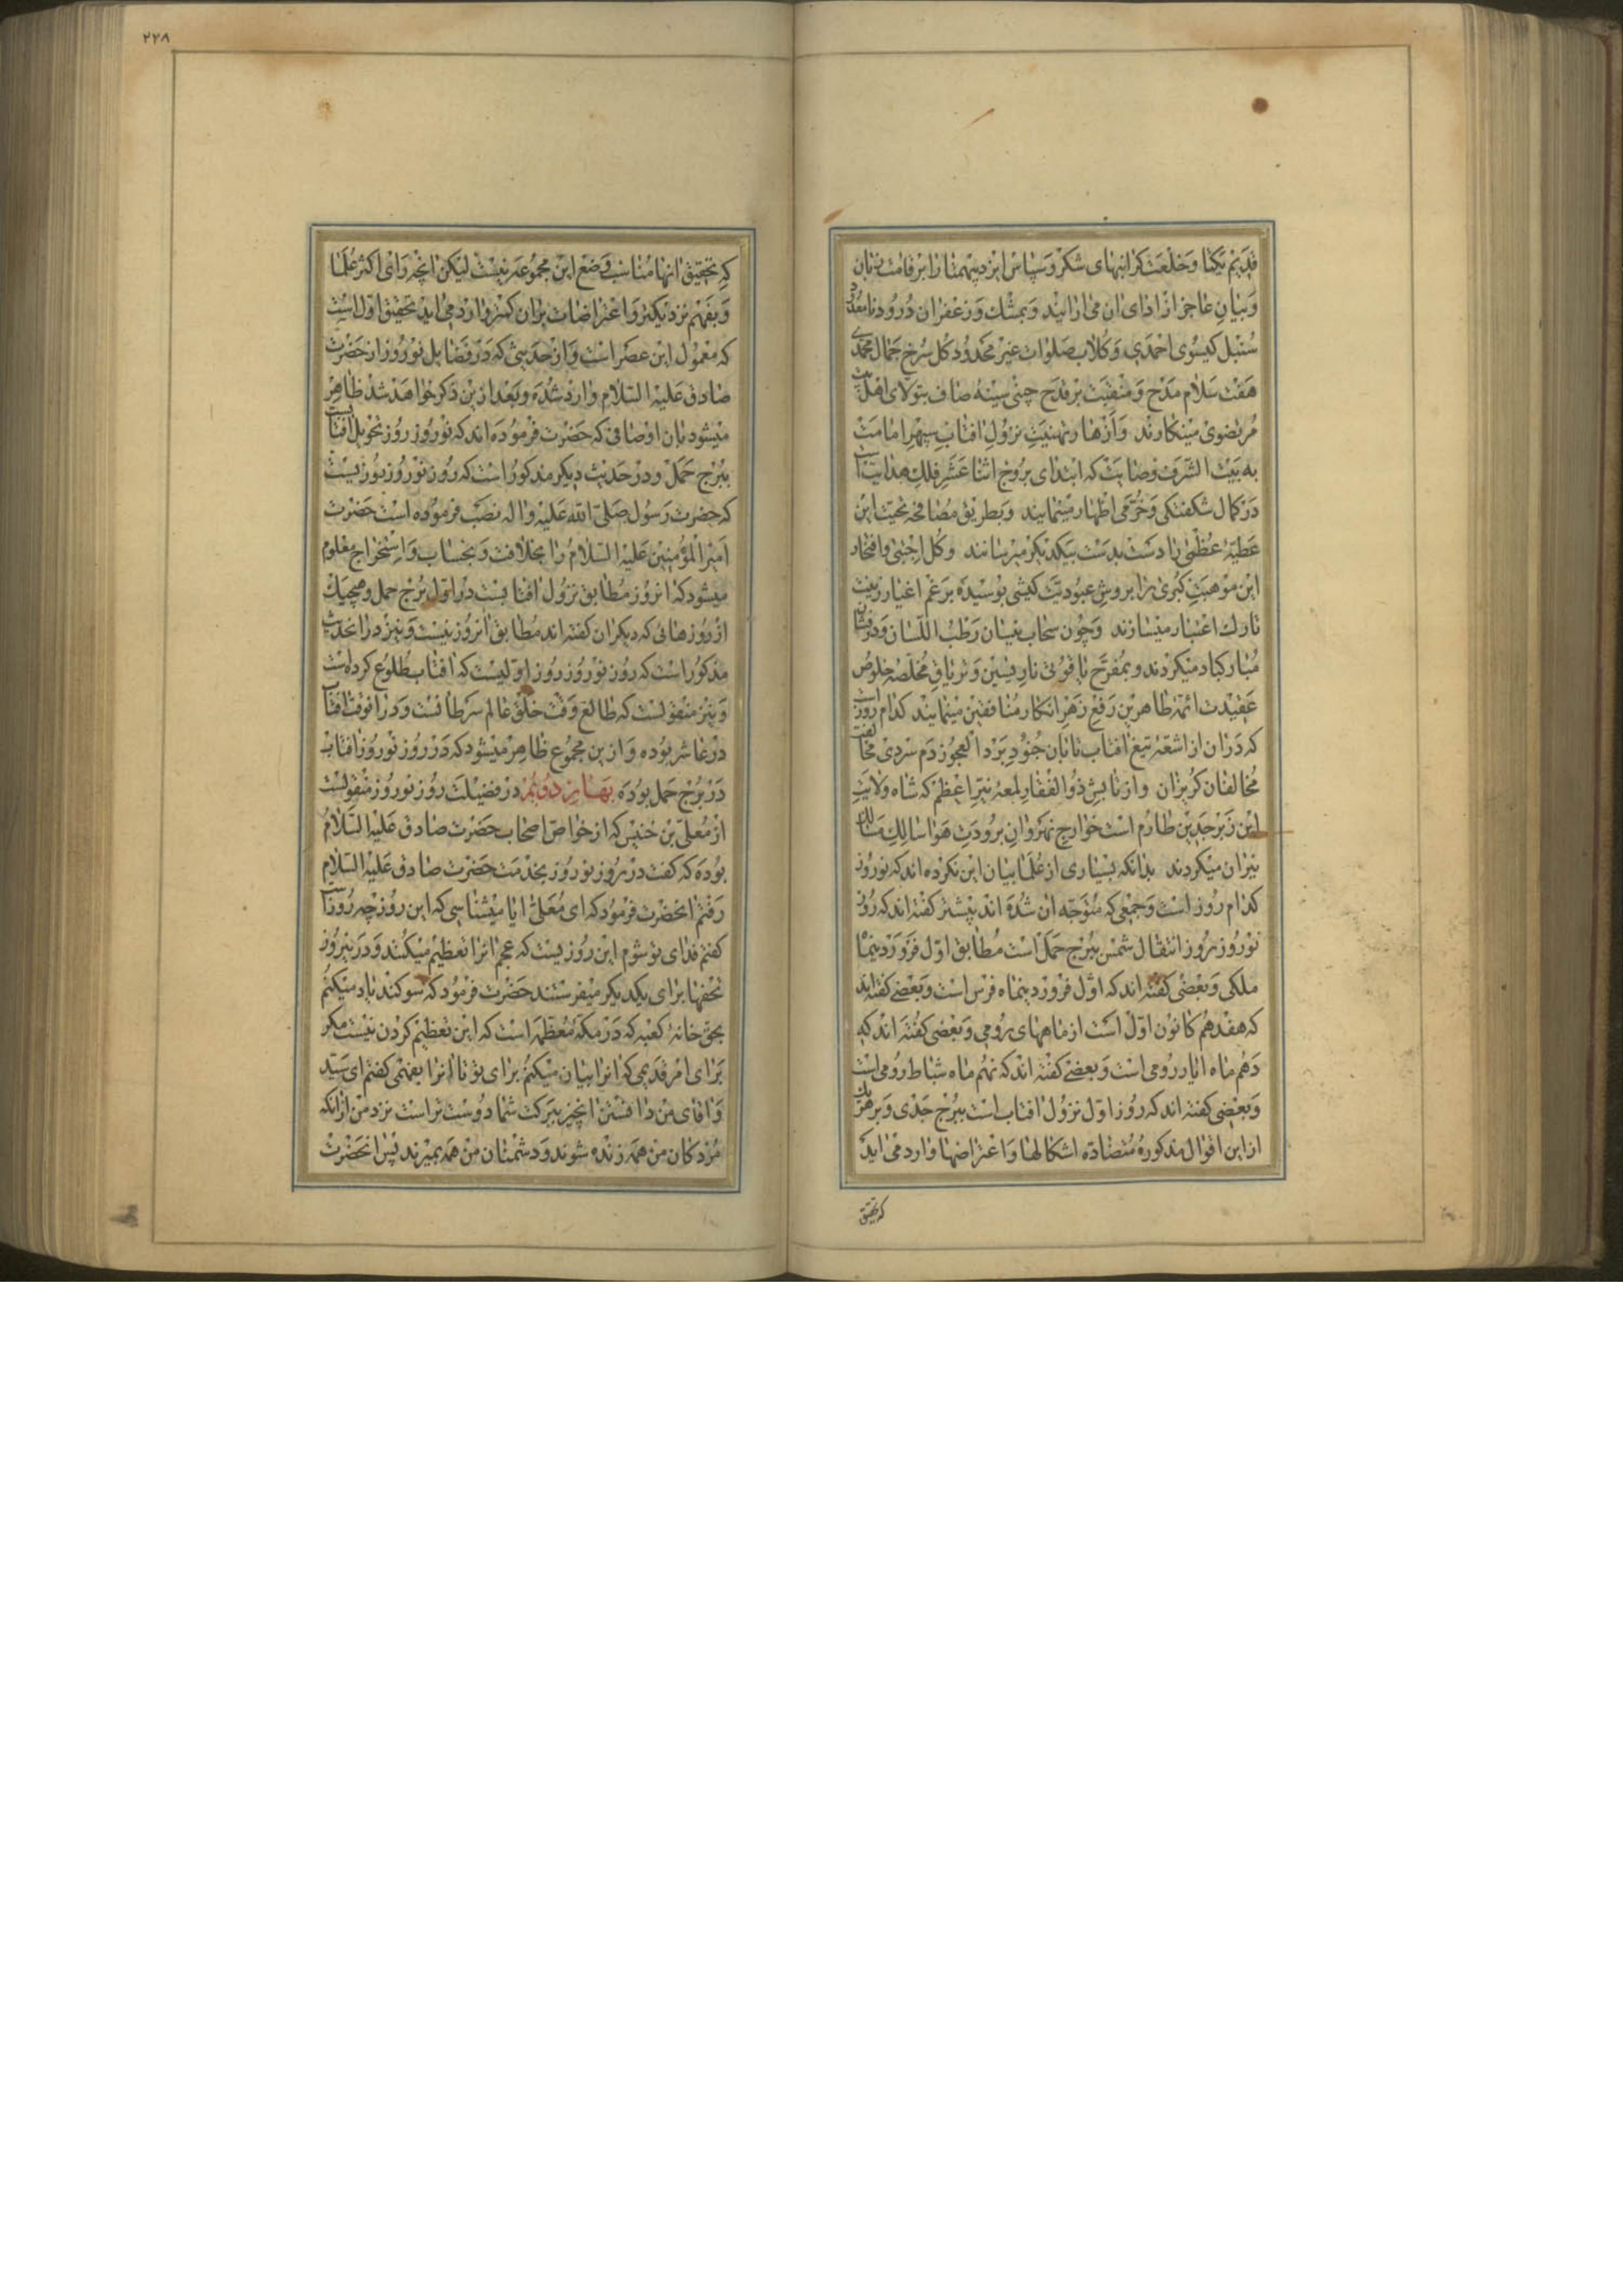 قدیم یکتا و خلعت کرانبهای شکر و سپاس ایزد بیهمتا را بر قامت زبان
و بیان عاجز از ادای ان می ارایند و بمشک و زعفران درود نامعدود
سنبل کیسوی احمدی و کلاب صلوات غیر محدود کل سرخ جمال محمدی
هفت سلام مدح و منقبت بر قدح چینی سینه صاف بتولای اهلبیت
مرتضوی مینکارند و ازهار تهنیت نزول افتاب سپهر امامت
به بیت الشرف وصایت که ابتدای بروج اثنا عشر فلک هدایتست
در کمال شکفتکی و خرمی اظهار مینمایند و بطریق مصافحه تحیت این
عطیهٔ عظمی را دست بدست بیکدیکر میرسانند و کل اجتبی و افتخار
این موهبت کبری را بروش عبودیت کیشی بوسیده بر غم اغیار زینت
تارک اعتبار میسازند و چون سحاب نیسان رطب اللسان و درفشان
مبارکباد میکردند و بمفرح یاقوتی نارپسین و تریاق مخلصه خلوص
عقیدت ائمهٔ طاهرین رفع زهر انکار منافقین مینمایند کدام روز است
که دران از اشعهٔ تیغ افتاب تابان جنود برد العجوز دم سردی مخالفت
مخالفان کریزان و از تابش ذوالفقار لمعه نیر اعظم که شاه ولایت
این زبرجدین طارم است خوارج نهروان برودت هوا سالک مسالک
نیران میکردند بدانکه بسیاری از علما بیان این نکرده اند که نوروز
کدام روز است و جمعی که متوجه ان شده اند بیشتر کفته اند که روز
نوروز روز انتقال شمس ببرج حمل است مطابق اول فروردینماه
ملکی و بعضی کفته اند که اول فروردینماه فرس است و بعضی کفته اند
که هفدهم کانون اول است از ماههای رومی و بعضی کفته اند که
دهم ماه ایار رومی است و بعضی کفته اند که نهم ماه شباط رومی است
و بعضی کفته اند که روز اول نزول افتاب است ببرج جدی و بر هر یک
از این اقوال مذکوره متضاده اشکالها و اعتراضها وارد می اید
که تحقیق
۲۲۸
که تحقیق انها مناسب وضع این مجموعه نیست لیکن انچه رای اکثر علما
و بفهم نزدیکتر و اعتراضات بران کمتر وارد می اید تحقیق اول است
که معمول این عصر است و از حدیثی که در فضایل نوروز از حضرت
صادق علیه السلام وارد شده و بعد ازین ذکر خواهد شد ظاهر
میشود بان اوصافی که حضرت فرموده اند که نوروز روز تحویل افتابست
ببرج حمل و در حدیث دیکر مذکور است که روز نوروز روزیست
که حضرت رسول صلی الله علیه واله نصب فرموده است حضرت
امیر المؤمنین علیه السلام را بخلافت و بحساب و استخراج معلوم
میشود که انروز مطابق نزول افتابست در اول برج حمل و هیچیک
از روزهائی که دیکران کفته اند مطابق انروز نیست و نیز در انحدیث
مذکور است که روز نوروز روز اولیست که افتاب طلوع کرده است
و نیز منقولست که طالع وقت خلق عالم سرطانست و در انوقت افتاب
در عاشر بوده و از ین مجموع ظاهر میشود که در روز نوروز افتاب
در برج حمل بوده بهار دویم در فضیلت روز نوروز منقولست
از معلی بن خنیس که از خواص اصحاب حضرت صادق علیه السلام
بوده که کفت در روز نوروز بخدمت حضرت صادق علیه السلام
رفتم انحضرت فرمود که ای معلی ایا میشناسی که این روز چه روز است
کفتم فدای تو شوم این روزیست که عجم انرا تعظیم میکنند و در ینروز
تحفها برای یکدیکر میفرستند حضرت فرمود که سوکند یاد میکنم
بحق خانهٔ کعبه که در مکهٔ معظمه است که این تعظیم کردن نیست مکر
برای امر قدیمی که انرا بیان میکنم برای تو تا انرا بفهمی کفتم ای سید
و اقای من دانستن اینچیز ببرکت شما دوست تراست نزد من از انکه
مردکان من همه زنده شوند و دشمنان من همه بمیرند پس انحضرت